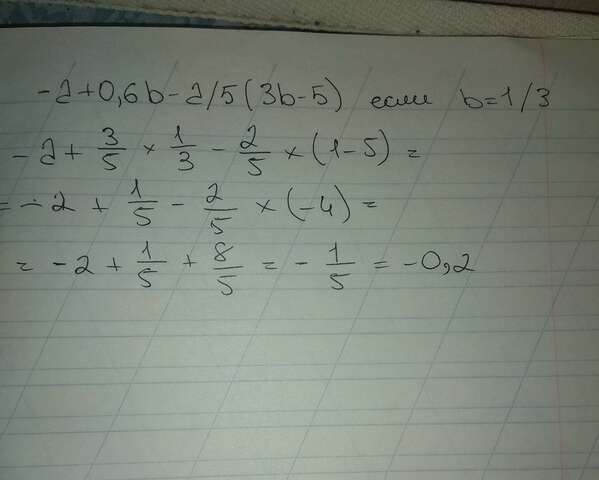 -2+0,6b-2/5(3b-5) если b=1/3
-2+3/5×1/3-2/5×(1-5)=
=-2+1/5-2/5×(-4)=
=-2+1/5+8/5=-1/5=-0,2